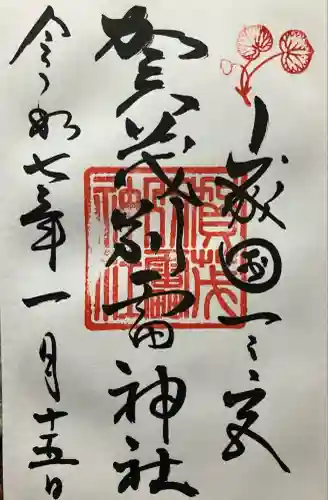 山城国一之宮
賀茂別雷神社
令和七年一月十五日
賀茂
別雷
神社